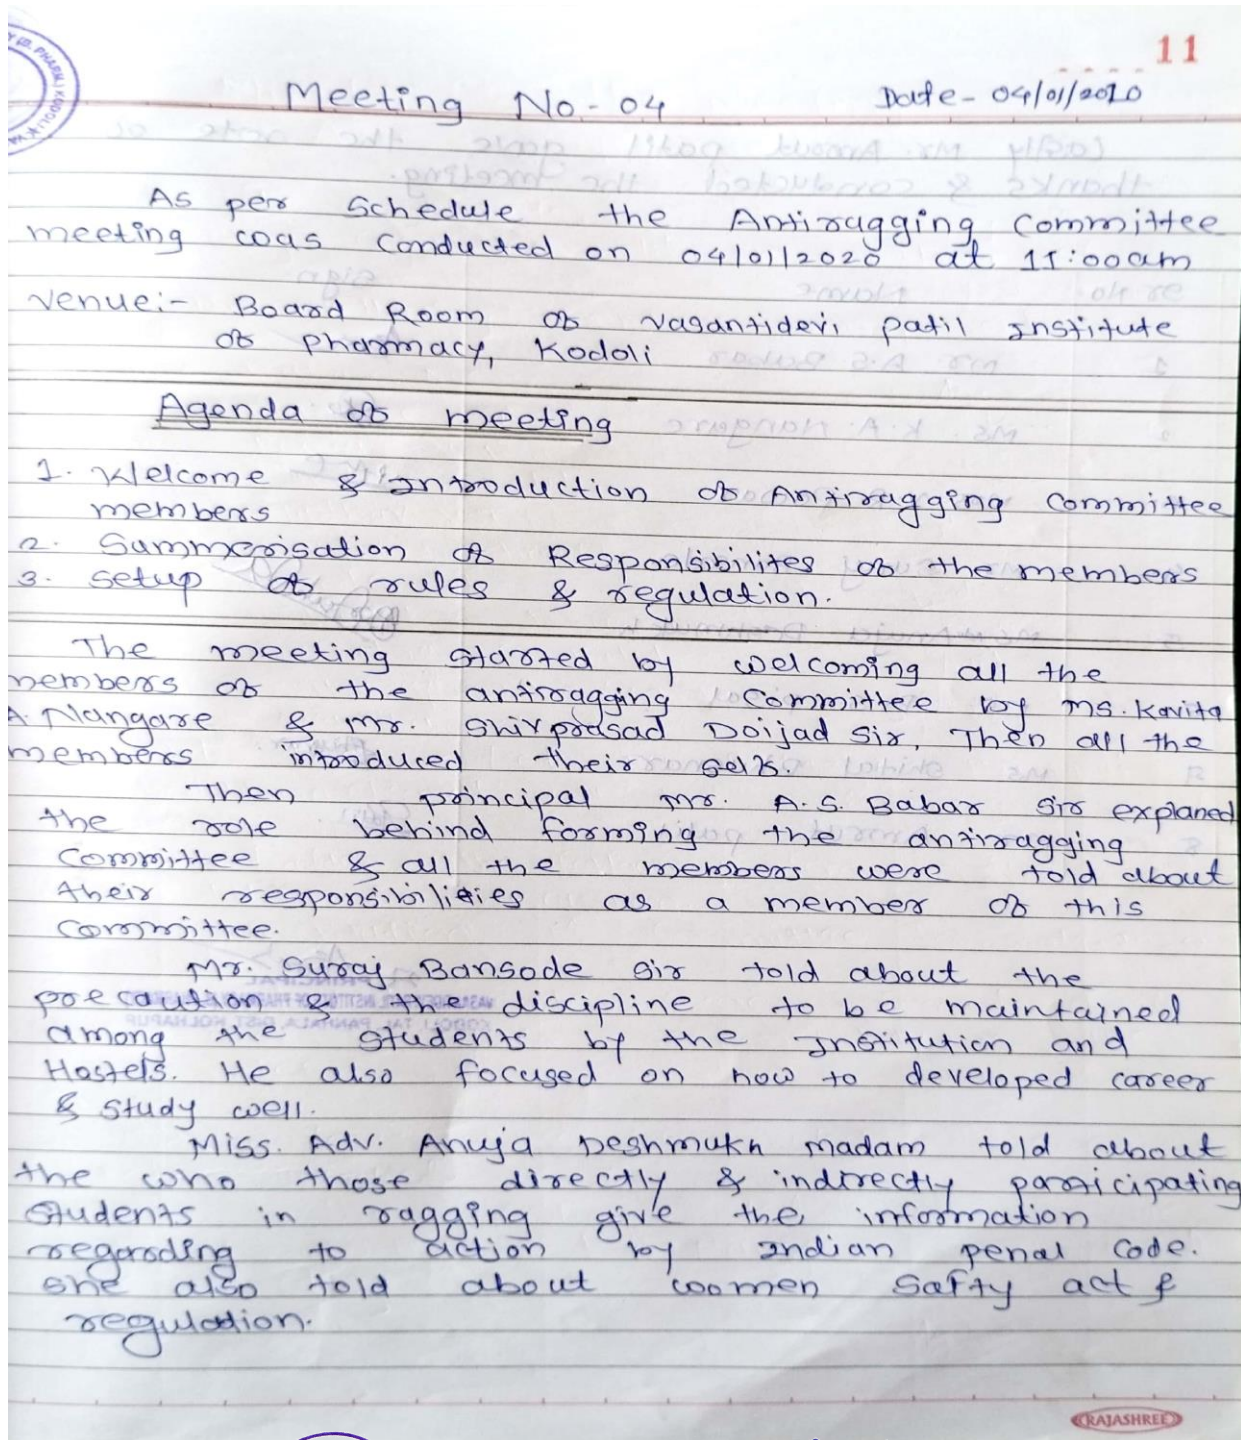 11
Meeting No - 04 Date - 04/01/2020
As per Schedule the Antiragging Committee
meeting was Conducted on 04/01/2020 at 11:00am
Venue:- Board Room of Vasantidevi patil Institute
of pharmacy, Kodoli
Agenda of meeting
1. Welcome & Introduction of Antiragging Committee
members
2. Summerisation of Responsibilites of the members
3. setup of rules & regulation.
The meeting started by welcoming all the
members of the antiragging Committee by Ms. Kavita
A. Nangare & Mr. Shivprasad Doijad Sir, Then all the
members introduced their self.
Then principal Mr. A.S. Babar Sir explaned
the role behind forming the antiragging
Committee & all the members were told about
their responsibilities as a member of this
Committee.
Mr. Suraj Bansode Sir told about the
precaution & the discipline to be maintained
among the students by the Institution and
Hostels. He also focused on how to developed career
& study well.
Miss. Adv. Anuja Deshmukh madam told about
the who those directly & indirectly participating
students in ragging give the information
regarding to action by Indian penal Code.
She also told about women Safty act &
regulation.
RAJASHREE